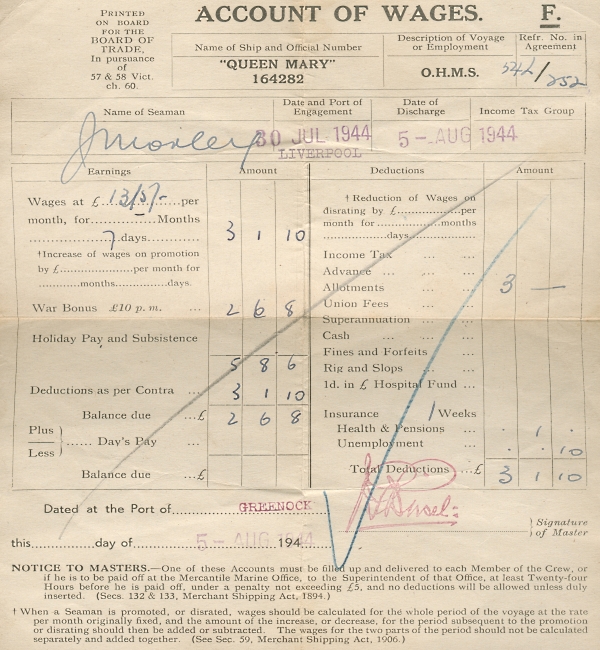 PRINTED
ON BOARD
FOR THE
BOARD OF
TRADE,
In pursuance
of
57 & 58 Vict.
ch. 60.
ACCOUNT OF WAGES. F.
Name of Ship and Official Number
"QUEEN MARY"
164282
Description of Voyage
or Employment
O.H.M.S.
Refr. No. in
Agreement
542/252
Name of Seaman
J Morley
Date and Port of
Engagement
30 JUL 1944
LIVERPOOL
Date of
Discharge
5 - AUG 1944
Income Tax Group
Earnings Amount
Wages at £ 13/5/- per
month, for Months
7 days 3 1 10
†Increase of wages on promotion
by £ per month for
months days.
War Bonus £10 p.m. 2 6 8
Holiday Pay and Subsistence
5 8 6
Deductions as per Contra 3 1 10
Balance due £ 2 6 8
Plus
Less
Day's Pay
Balance due £
Deductions Amount
† Reduction of Wages on
disrating by £ per
month for months
days.
Income Tax
Advance
Allotments 3 —
Union Fees
Superannuation
Cash
Fines and Forfeits
Rig and Slops
1d. in £ Hospital Fund
Insurance 1 Weeks
Health & Pensions . 1 .
Unemployment . . 10
Total Deductions £ 3 1 10
Dated at the Port of GREENOCK
this day of 5 - AUG 1944 194
Signature
of Master
NOTICE TO MASTERS.—One of these Accounts must be filled up and delivered to each Member of the Crew, or
if he is to be paid off at the Mercantile Marine Office, to the Superintendent of that Office, at least Twenty-four
Hours before he is paid off, under a penalty not exceeding £5, and no deductions will be allowed unless duly
inserted. (Secs. 132 & 133, Merchant Shipping Act, 1894.)
† When a Seaman is promoted, or disrated, wages should be calculated for the whole period of the voyage at the rate
per month originally fixed, and the amount of the increase, or decrease, for the period subsequent to the promotion
or disrating should then be added or subtracted. The wages for the two parts of the period should not be calculated
separately and added together. (See Sec. 59, Merchant Shipping Act, 1906.)